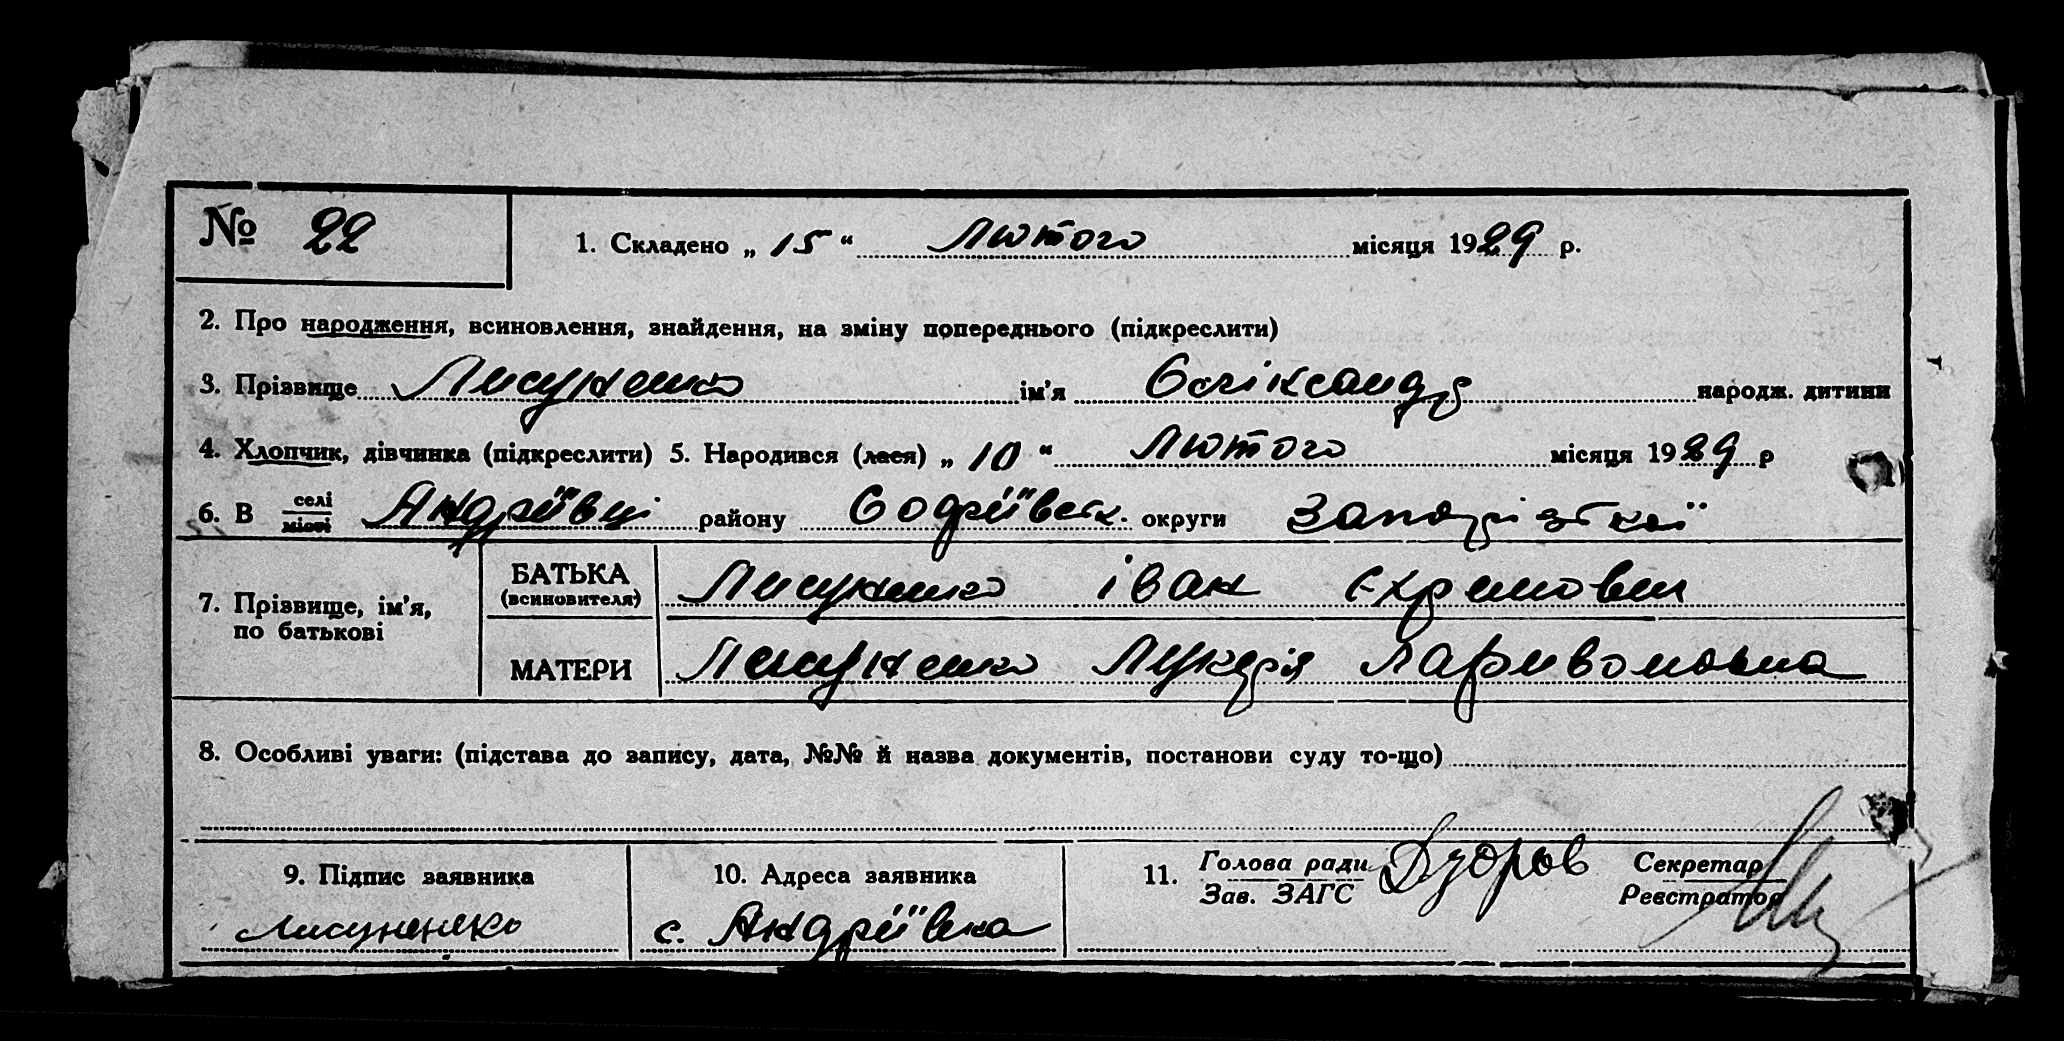 № 22
1. Складено „ 15 “ Лютого місяця 1929 р.
2. Про народження, всиновлення, знайдення, на зміну попереднього (підкреслити)
3. Прізвище Лисуненко ім'я Олександр народж. дитини
4. Хлопчик, дівчинка (підкреслити) 5. Народився (лася) „ 10 “ Лютого місяця 1929 р
6. В селі місті Андріївці району округи Запорізької
7. Прізвище, ім'я, по батькові
БАТЬКА (всиновителя) Лисуненко Іван
МАТЕРИ Лисуненко Лукерія Ларивоновна
8. Особливі уваги: (підстава до запису, дата, №№ й назва документів, постанови суду то-що)
9. Підпис заявника
Лисуненко
10. Адреса заявника
с. Андріївка
11. Голова ради
Зав. ЗАГС
Секретар
Реєстратор